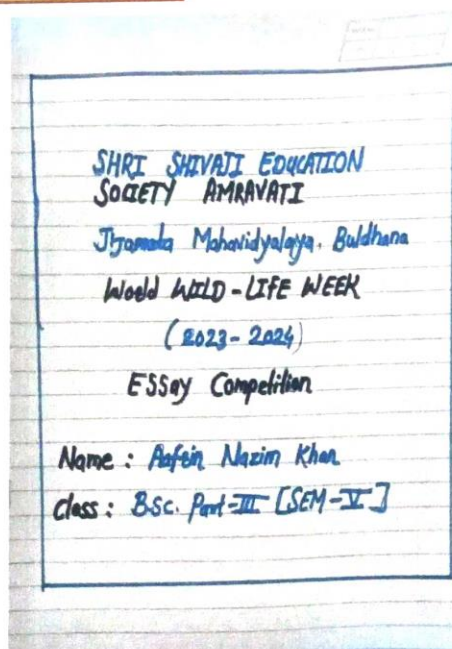 SHRI SHIVAJI EDUCATION
SOCIETY AMRAVATI
Jijamata Mahavidyalaya, Buldhana
World WILD-LIFE WEEK
(2023-2024)
ESSay Competition
Name : Aafrin Nazim Khan
class : B.Sc. Part-III [SEM-V]